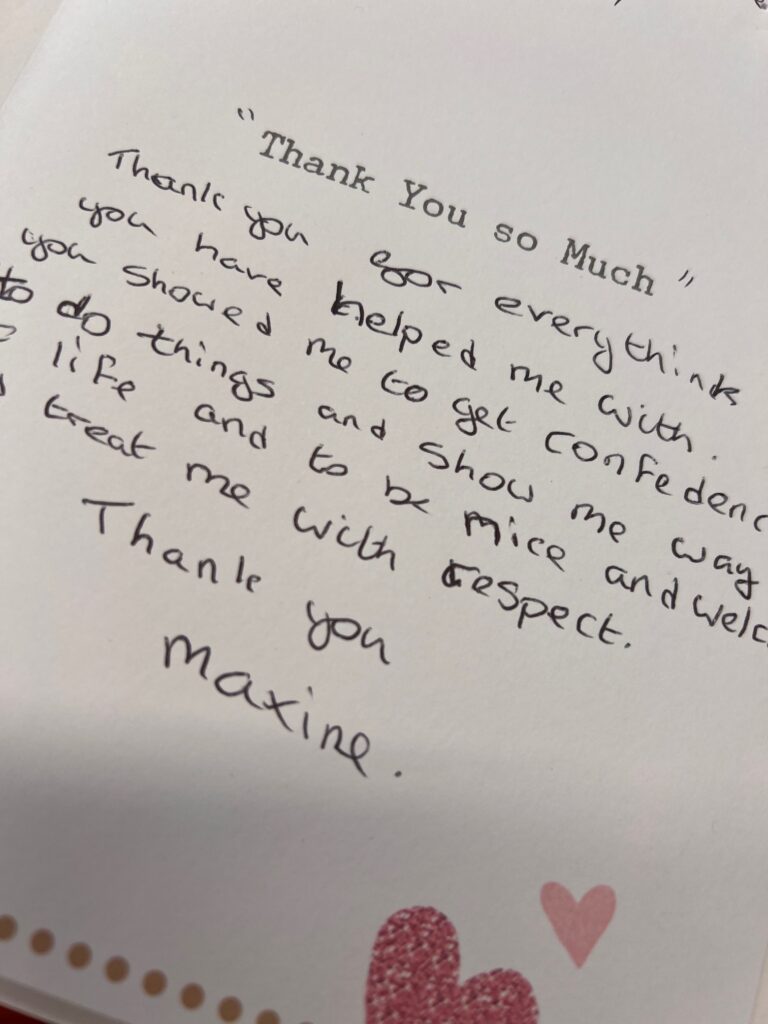 "Thank You so Much"
Thank you for everythink
you have helped me with.
you showed me to get confedenc
to do things and show me way
life and to be nice and welc
treat me with respect.
Thank you
Maxine.